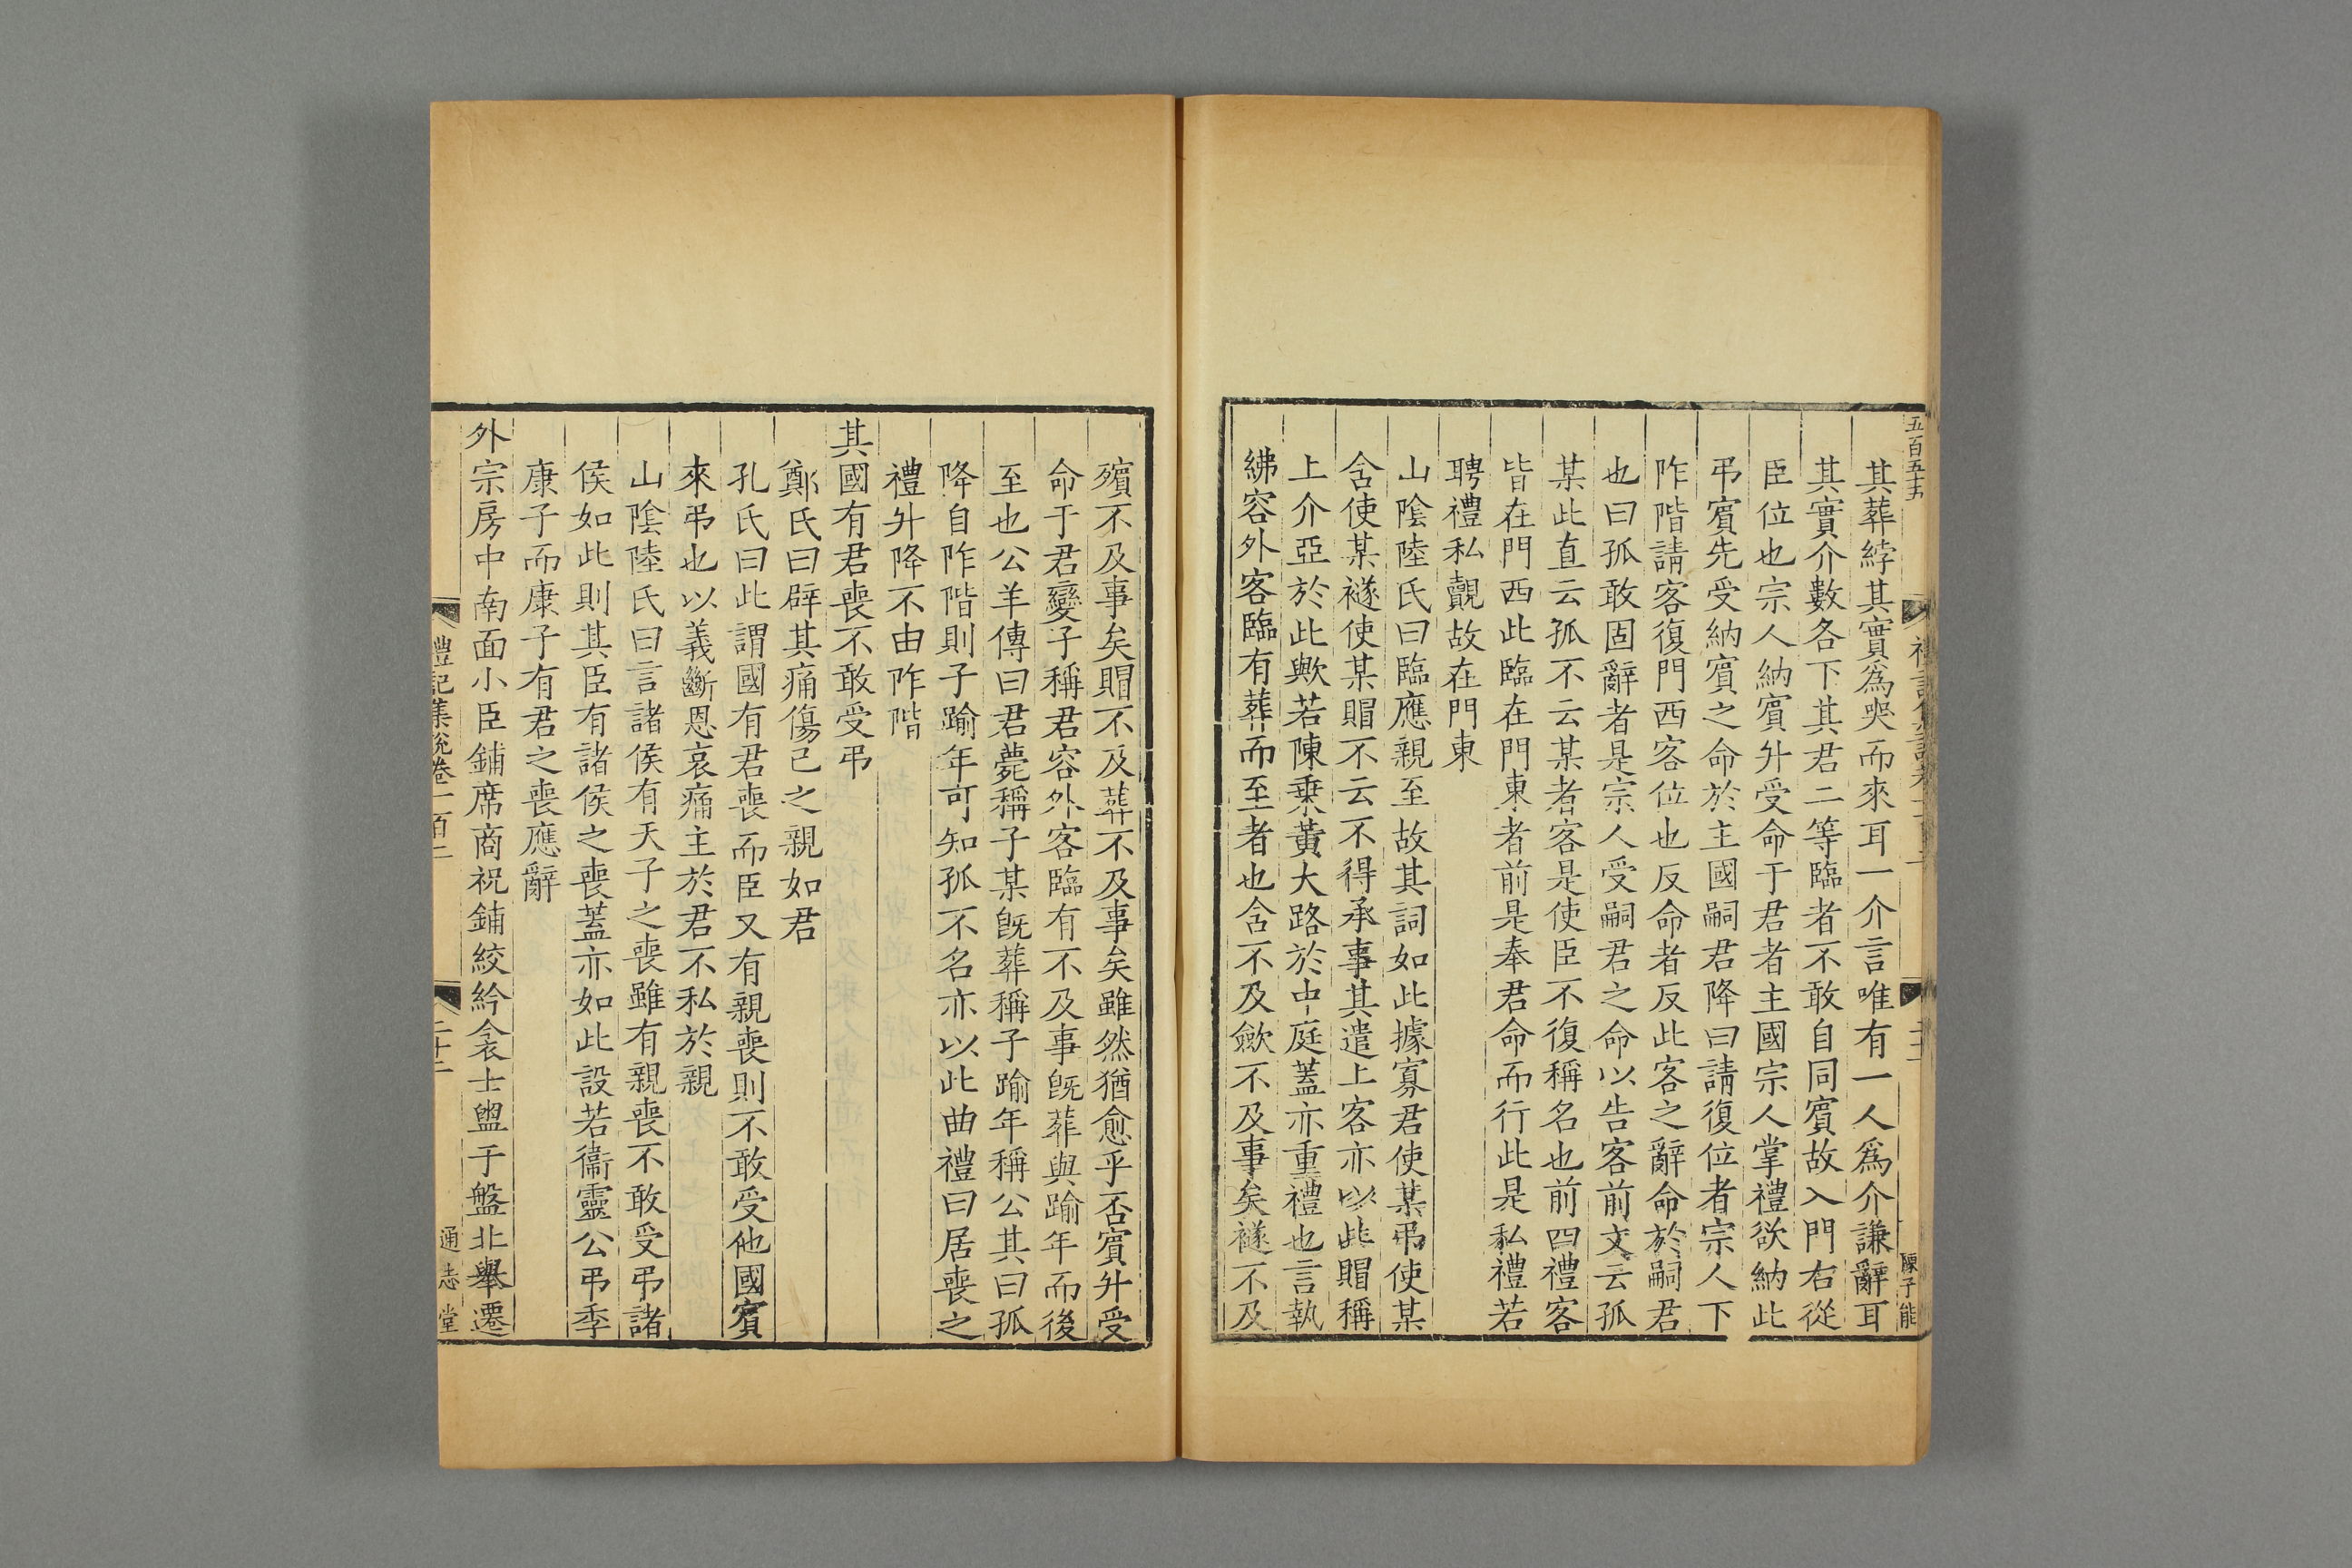 五百五十五
陳子能
其葬綍其實爲哭而來耳一介言唯有一人爲介謙辭耳
其實介數各下其君二等臨者不敢自同賓故入門右從
臣位也宗人納賓升受命于君者主國宗人掌禮欲納此
弔賓先受納賓之命於主國嗣君降曰請復位者宗人下
阼階請客復門西客位也反命者反此客之辭命於嗣君
也曰孤敢固辭者是宗人受嗣君之命以告客前文云孤
某此直云孤不云某者客是使臣不復稱名也前四禮客
皆在門西此臨在門東者前是奉君命而行此是私禮若
聘禮私覿故在門東
山陰陸氏曰臨應親至故其詞如此據寡君使某弔使某
含使某襚使某賵不云不得承事其遣上客亦以此賵稱
上介亞於此歟若陳乗黃大路於中庭蓋亦重禮也言執
紼容外客臨有葬而至者也含不及斂不及事矣襚不及
殯不及事矣賵不及葬不及事矣雖然猶愈乎否賓升受
命于君變子稱君容外客臨有不及事旣葬與踰年而後
至也公羊傳曰君薨稱子某旣葬稱子踰年稱公其曰孤
降自阼階則子踰年可知孤不名亦以此曲禮曰居喪之
禮升降不由阼階
其國有君喪不敢受弔
鄭氏曰辟其痛傷己之親如君
孔氏曰此謂國有君喪而臣又有親喪則不敢受他國賓
來弔也以義斷恩哀痛主於君不私於親
山陰陸氏曰言諸侯有天子之喪雖有親喪不敢受弔諸
侯如此則其臣有諸侯之喪蓋亦如此設若衞靈公弔季
康子而康子有君之喪應辭
外宗房中南面小臣鋪席商祝鋪絞紟衾士盥于盤北舉遷
禮記集說卷一百二
二十二
通志堂